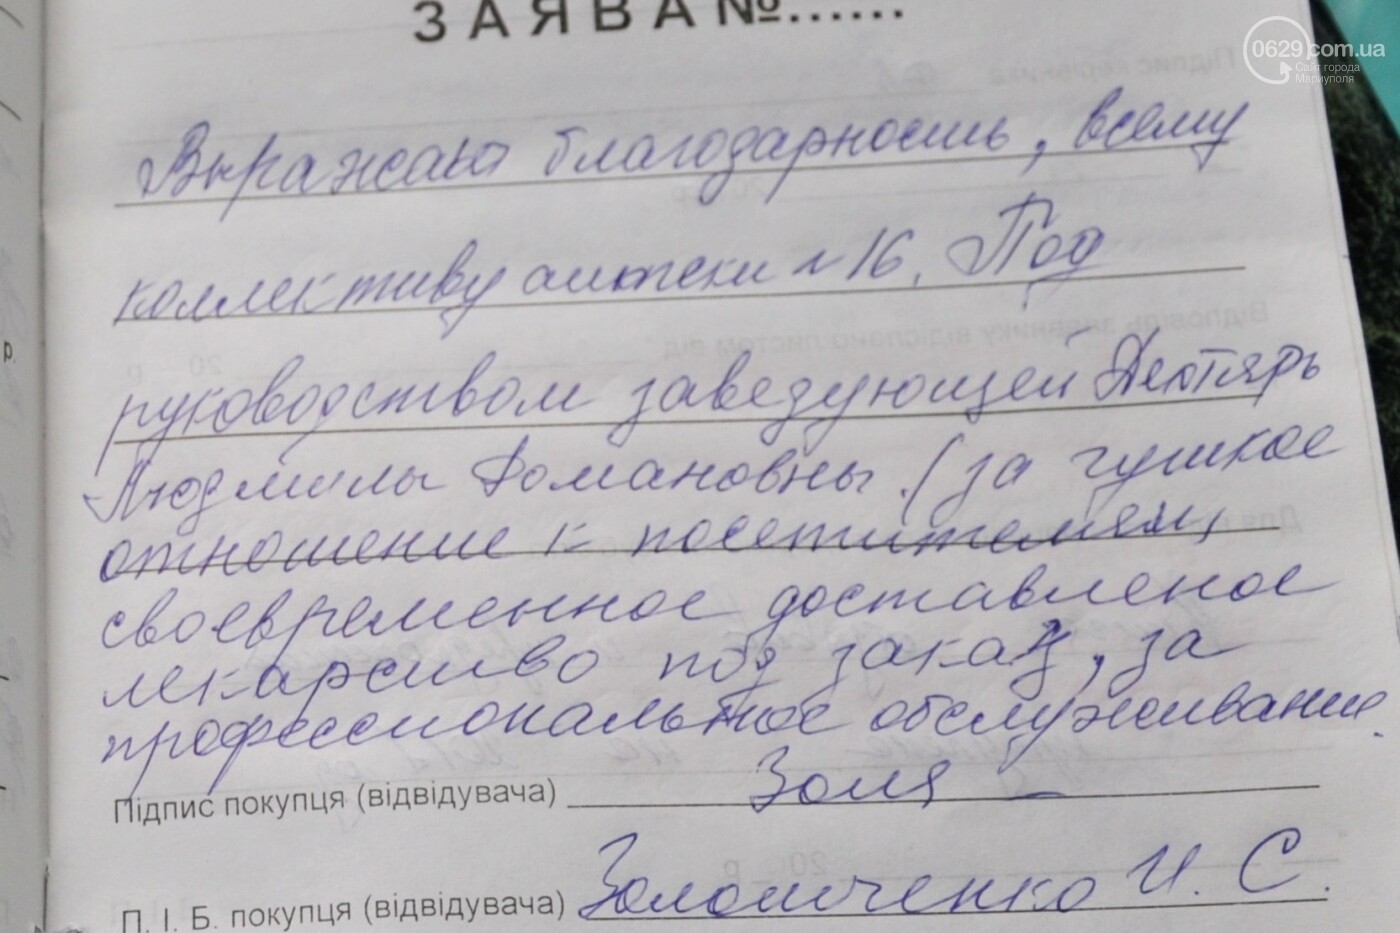 ЗАЯВА №......
0629.com.ua
Сайт города
Мариуполя
Выражаю благодарность, всему
коллективу аптеки №16. Под
руководством заведующей Дегтярь
Людмилы Романовны. (за чуткое
отношение к посетителям,
своевременное доставленое
лекарство под заказ, за
профессиональное обслуживание.
Підпис покупця (відвідувача) Золя
П. І. Б. покупця (відвідувача) Золотченко И. С.
р.